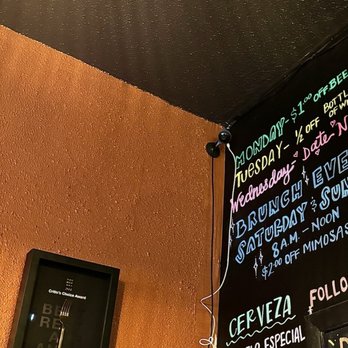 MONDAY- $1.00 OFF BEE
TUESDAY- 1/2 OFF BOTTL
OF W
Wednesday- Date N
BRUNCH EVE
SATURDAY & SUN
8 A.M. - NOON
$2.00 OFF MIMOSAS
CERVEZA
FOLLO
ESPECIAL
Critic's Choice Award
BE
RE
A